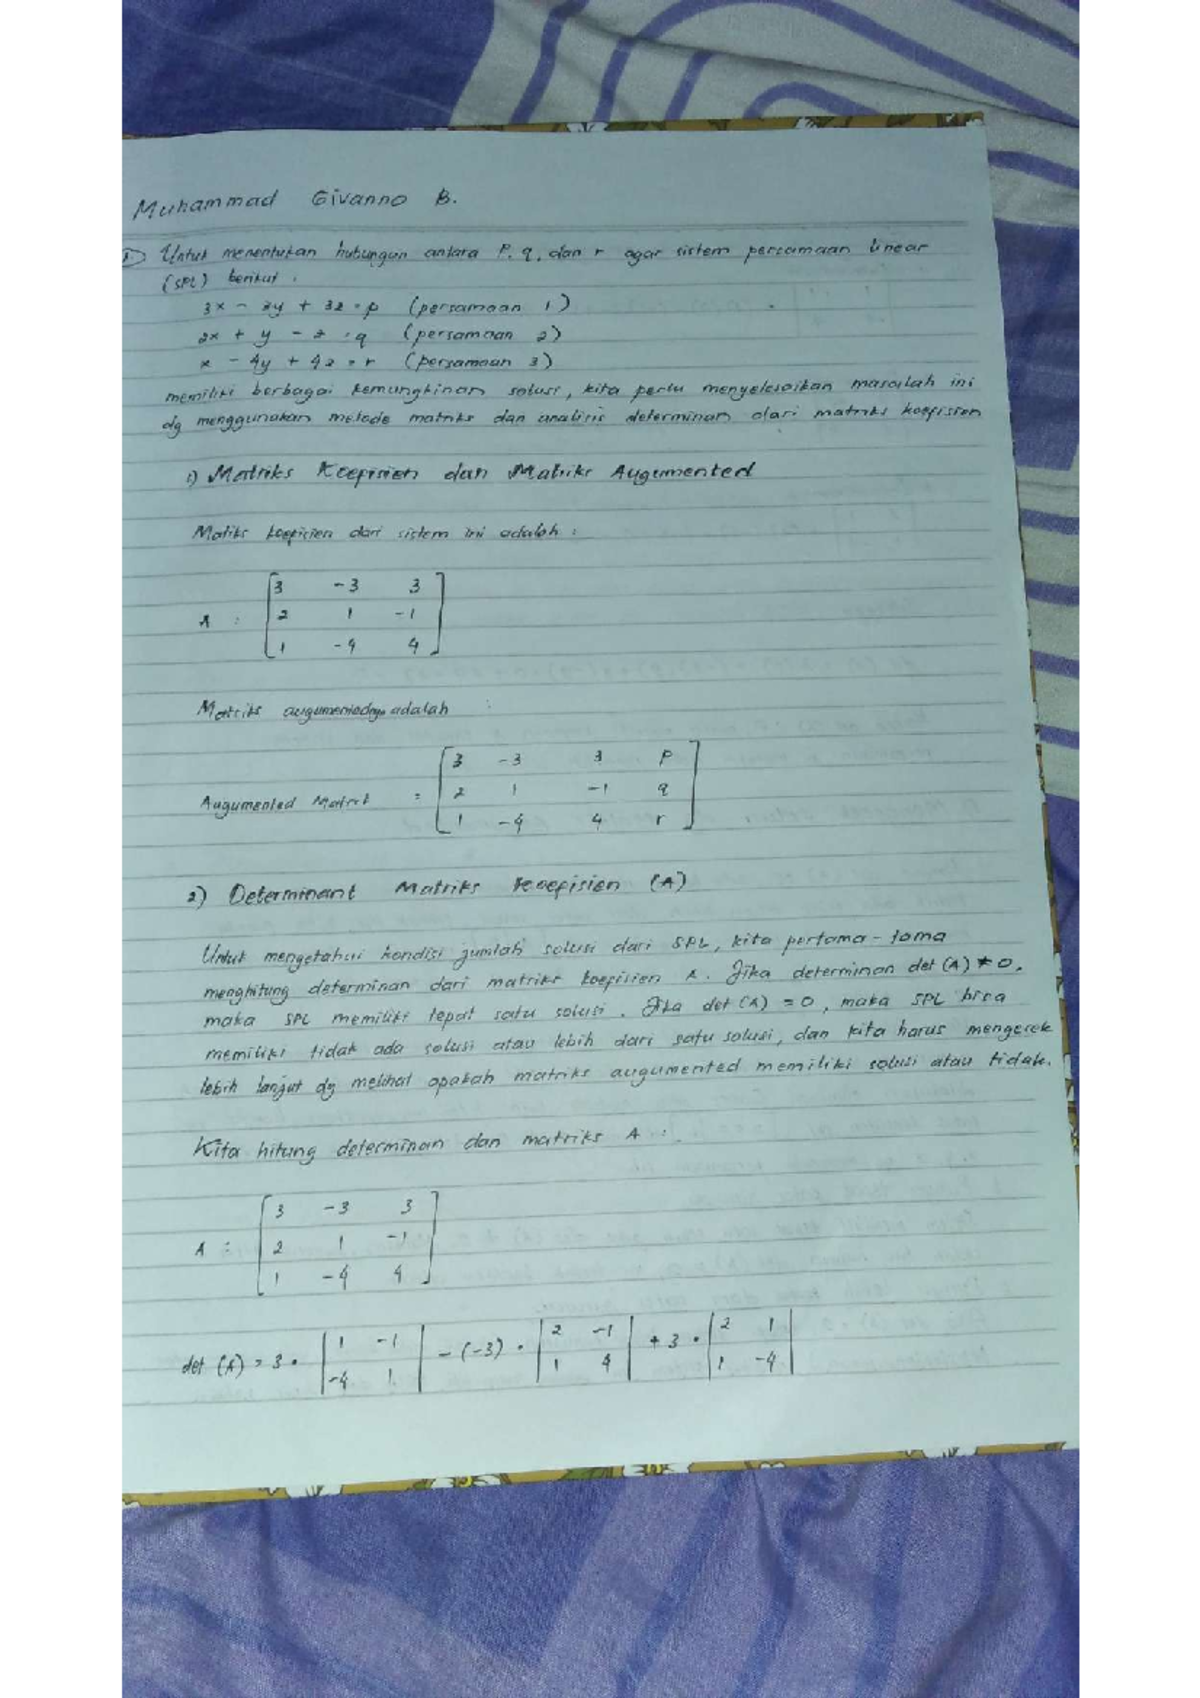 Muhammad Givanno B.
1) Untuk menentukan hubungan antara P, q, dan r agar sistem persamaan linear
(SPL) berikut :
3x - 3y + 3z = p (persamaan 1)
2x + y - z = q (persamaan 2)
x - 4y + 4z = r (persamaan 3)
memiliki berbagai kemungkinan solusi, kita perlu menyelesaikan masalah ini
dg menggunakan metode matriks dan analisis determinan dari matriks koefisien
1) Matriks Koefisien dan Matriks Augumented
Matiks koefisien dari sistem ini adalah :
3 -3 3
A : 2 1 -1
1 -4 4
Matriks augumentednya adalah :
3 -3 3 P
Augumented Matrik = 2 1 -1 q
1 -4 4 r
2) Determinant Matriks Koefisien (A)
Untuk mengetahui kondisi jumlah solusi dari SPL, kita pertama-tama
menghitung determinan dari matriks koefisien A. Jika determinan det (A) ≠ 0,
maka SPL memiliki tepat satu solusi. Jika det (A) = 0, maka SPL bisa
memiliki tidak ada solusi atau lebih dari satu solusi, dan kita harus mengecek
lebih lanjut dg melihat apakah matriks augumented memiliki solusi atau tidak.
Kita hitung determinan dan matriks A :
3 -3 3
A = 2 1 -1
1 -4 4
det (A) = 3 • | 1 -1 | - (-3) • | 2 -1 | + 3 • | 2 1 |
| -4 1 | | 1 4 | | 1 -4 |